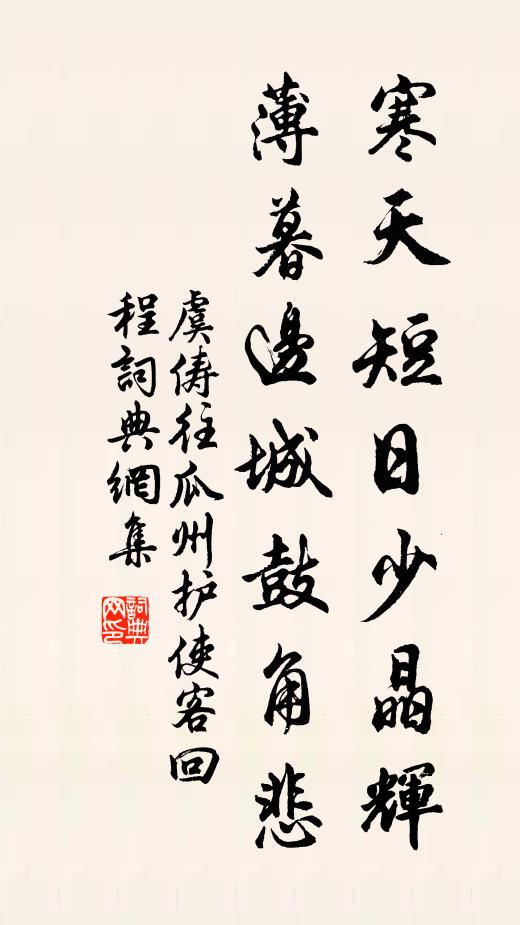 寒天短日少晶輝
薄暮邊城鼓角悲
虞儔往瓜州护使客回
程詞典網集
詞典
网印